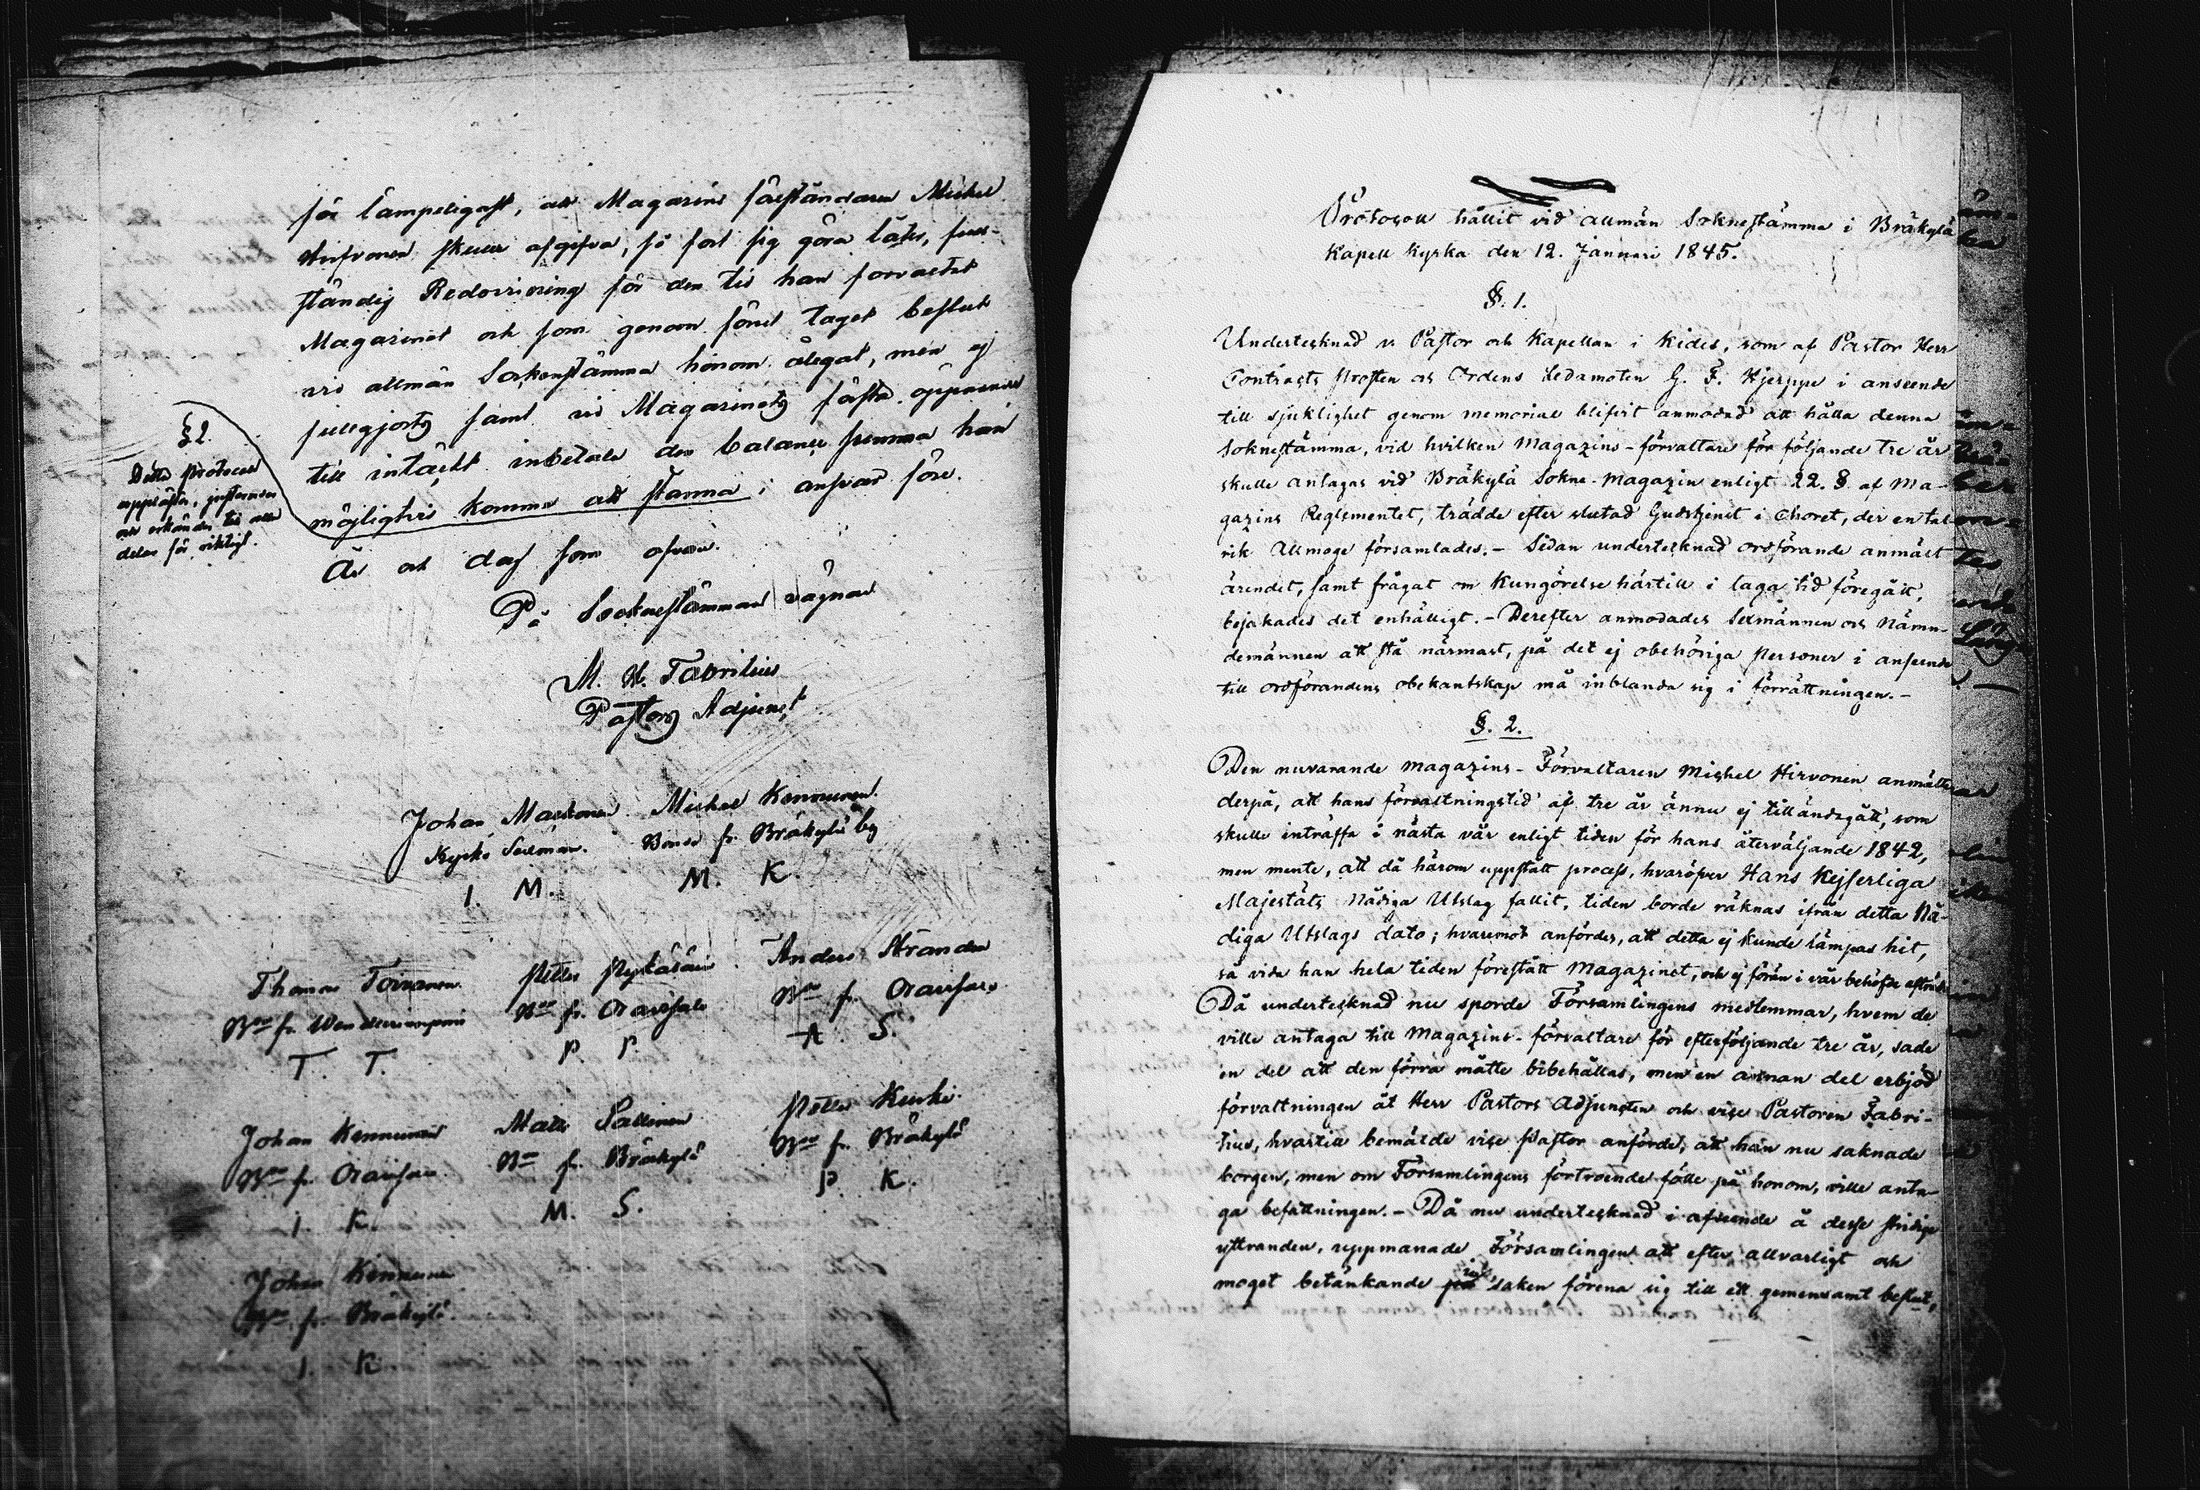 för lämpeligast, att Magasins föreståndaren Michel
Hirfvonen skulle afgifva, så fort sig göra låter, full-
ständig Redovisning för den tid han forvaltat
Magasinet och som genom förut taget beslut
vid allmän Sockenstämma honom ålegat, men ej
fullgjorts samt vid Magasinets första öppnande
till intägt inbetala den balance summa han
möjligtvis komma att stanna i ansvar före.
§ 2.
Detta Protocoll
upplästes, justerades
och erkändes till alla
delar för riktigt.
År och dag som ofvan.
På Socknestämmans vägnar
M. W. Fabritius
Pastors Adjunct
Johan Michel Kennunen
Kyrko Sexman. Bonde fr. Bräkylä by
I. M. M. K.
Thomas Toivanen Petter Anders
Bde fr. Bde fr. Oravisalo Bde fr. Oravisalo
T. T. P. P. A. S.
Johan Kennunen Mats Sallinen Petter
Bde fr. Oravisalo Bde fr. Bräkylä Bde fr. Bräkylä
I. K. M. S. P. K.
Johan Kennunen
Bde fr. Bräkylä
I. K.
Protocoll hållit vid allmän Soknestämma i Bräkylä
Kapell Kyrka den 12. Januari 1845.
§. 1.
Undertecknad v. Pastor och Kapellan i Kides, som af Pastor Herr
Contracts Prosten och Ordens Ledamoten G. F. Hjerppe i anseende
till sjuklighet genom memorial blifvit anmodad att hålla denna
Soknestämma, vid hvilken Magazins-förvaltare för följande tre år
skulle antagas vid Bräkylä Sokne-Magazin enligt 22. §. af Ma-
gazins Reglementet, trädde efter slutad Gudstjenst i Choret, der en tal-
rik Allmoge församlades. - Sedan undertecknad ordförande anmält
ärendet, samt frågat om Kungörelse härtill i laga tid föregått,
bejakades det enhälligt. - Derefter anmodades Sexmännen och Nämn-
demännen att stå närmast, på det ej obehöriga personer i anseende
till ordförandens obekantskap må inblanda sig i förrättningen. -
§. 2.
Den nuvarande magazins-Förvaltaren Michel Hirvonen anmälte
derpå, att hans förvaltningstid af tre år ännu ej tilländagått, som
skulle inträffa i nästa vår enligt tiden för hans återväljande 1842,
men mente, att då härom uppstått process, hvaröfver Hans Kejserliga
Majestäts Nådiga Utslag fallit, tiden borde räknas ifrån detta Nå-
diga Utslags dato; hvaremot anfördes, att detta ej kunde lämpas hit,
så vida han hela tiden förestått Magazinet, och ej förän i vår behöfde afträda
Då undertecknad nu sporde Församlingens medlemmar, hvem de
ville antaga till Magazins-förvaltare för efterföljande tre år, sade
en del att den förra måtte bibehållas, men en annan del erbjöd
förvaltningen åt Herr Pastors Adjuncten och vice Pastoren Fabri-
tius, hvartill bemälde vice Pastor anförde, att han nu saknade
borgen, men om Församlingens förtroende fölle på honom, ville anta-
ga befattningen. - Då nu undertecknad i afseende å desse stridige
yttranden, uppmanade Församlingen att efter allvarligt och
moget betänkande saken förena sig till ett gemensamt beslut,